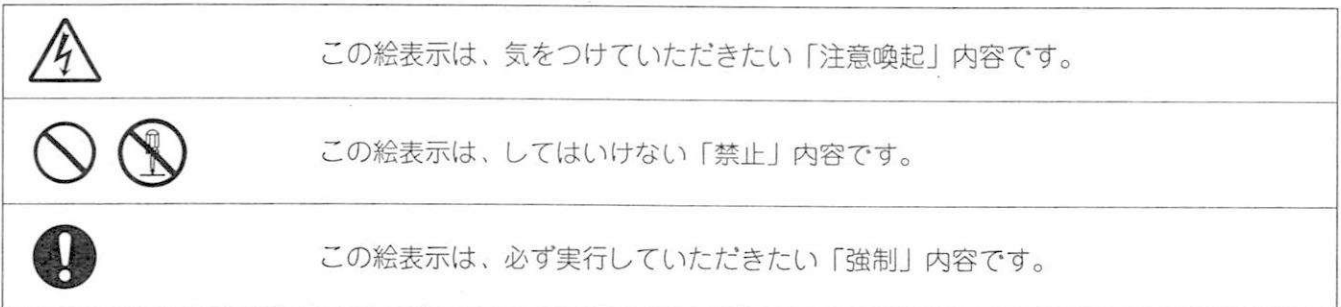 この絵表示は、気をつけていただきたい「注意喚起」内容です。
この絵表示は、してはいけない「禁止」内容です。
この絵表示は、必ず実行していただきたい「強制」内容です。